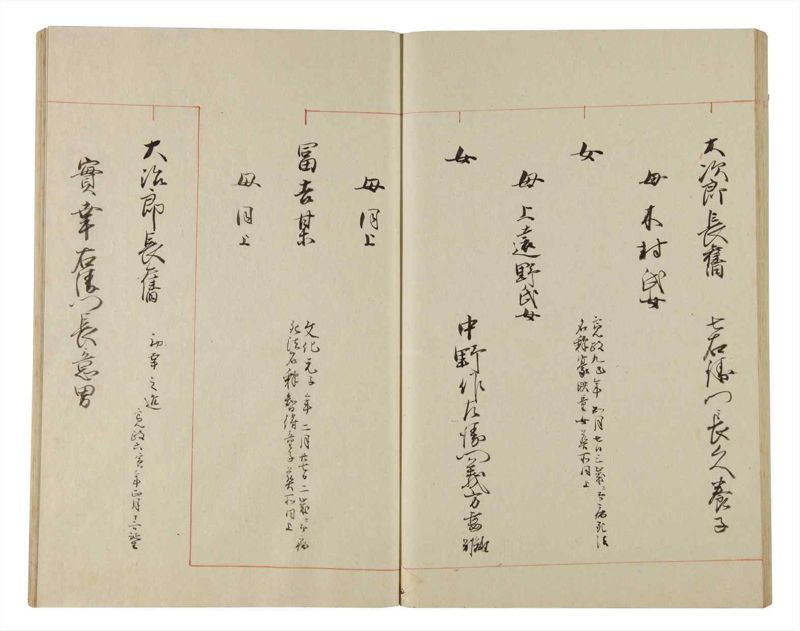 大次郎長舊 七右衛門長久養子
母木村氏女
女
寛政九巳年 月廿日三歳ニ而病死法
名釋 童女葬所同上
母上遠野氏女
女 中野作左衛門義方妻 離
母同上
冨吉某
文化元子年二月廿七日二歳ニ而病
死法名釋智 童子葬所同上
母同上
大治郎長舊 初幸之進 寛政六寅年正月
實幸右衛門長意男